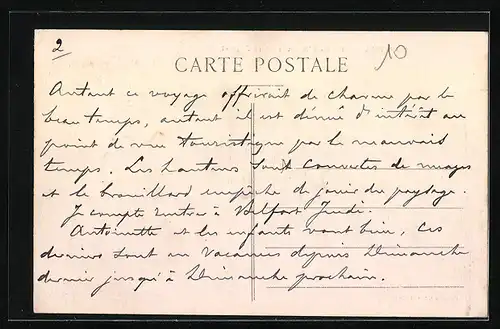 2
10
CARTE POSTALE
Autant ce voyage offrirait de charme par le
beau temps, autant il est dénué d'intérêt au
point de vue touristique par le mauvais
temps. Les hauteurs sont couvertes de nuages
et le brouillard empêche de jouir du paysage.
Je compte rentrer à Belfort Jeudi.
Antoinette et les enfants vont bien, ces
derniers sont en vacances depuis Dimanche
dernier jusqu'à Dimanche prochain.